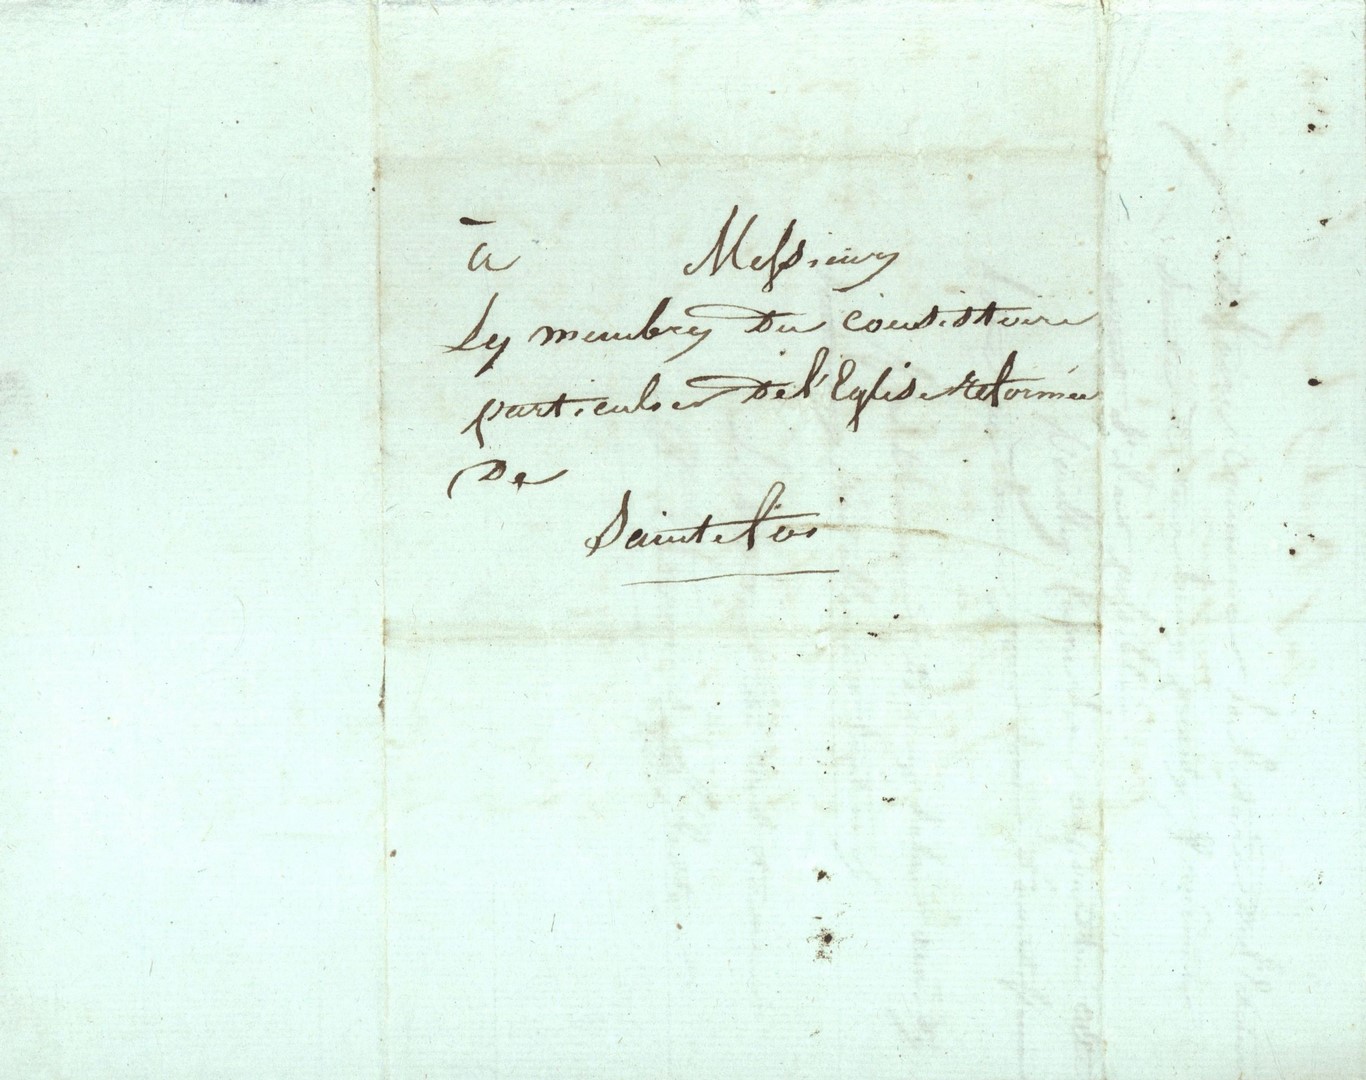 à Messieurs
Les membres du consistoire
particulier de l'Eglise Reformée
De
Sainte foi